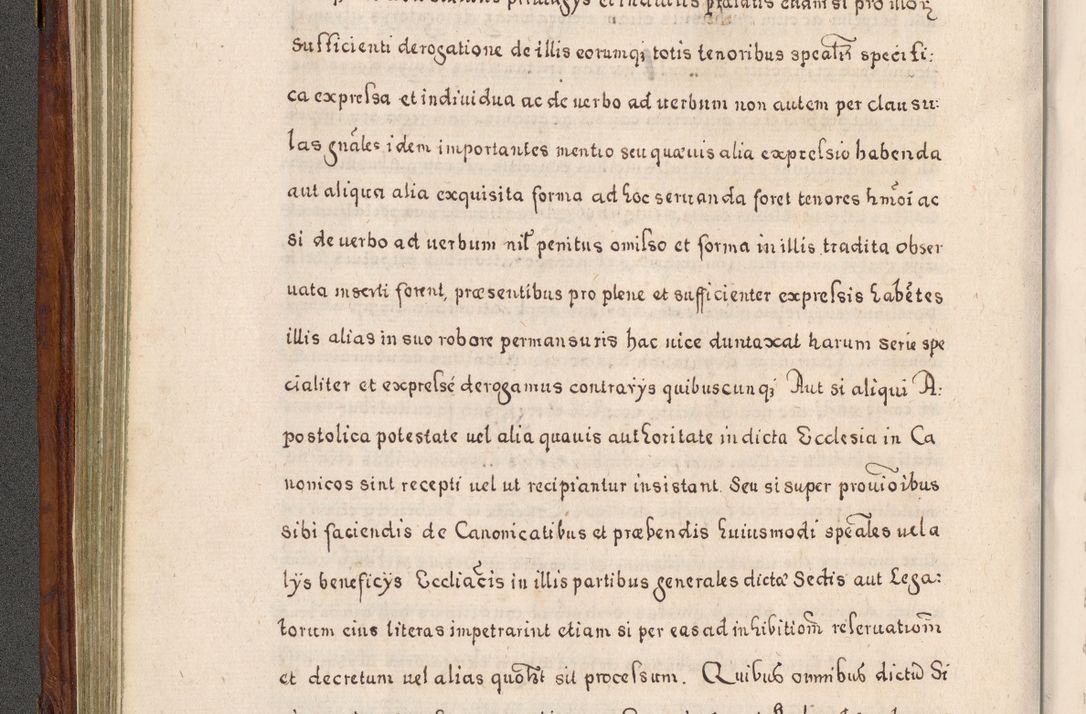 privilegys et indultis praelatis etiam si pro illor
sufficienti derogatione de illis eorumq; totis tenoribus speatr specifi:
ca expressa et indiuidua ac de uerbo ad uerbum non autem per clausu:
las gnãles idem importantes mentio seu quæuis alia expressio habenda
aut aliqua alia exquisita forma ad hoc seruanda foret tenores hmõi ac
si de uerbo ad uerbum nil penitus omisso et forma in illis tradita obser
uata inserti forent, præsentibus pro plene et sufficienter expressis habẽtes
illis alias in suo robore permansuris hac uice duntaxat harum serie spe
cialiter et expresse derogamus contrarys quibuscunq; Aut si aliqui A:
postolica potestate uel alia quauis authoritate in dicta Ecclesia in Ca
nonicos sint recepti uel ut recipiantur insistant. Seu si super prouĩoibus
sibi faciendis de Canonicatibus et præbendis huiusmodi speãles uel a
lys beneficys Eccliãcis in illis partibus generales dictæ Sedis aut Lega:
torum eius literas impetrarint etiam si per eas ad inhibitiom̃ reseruatiom̃
et decretum uel alias quoht sit processum. Quibus omnibus dictu Si